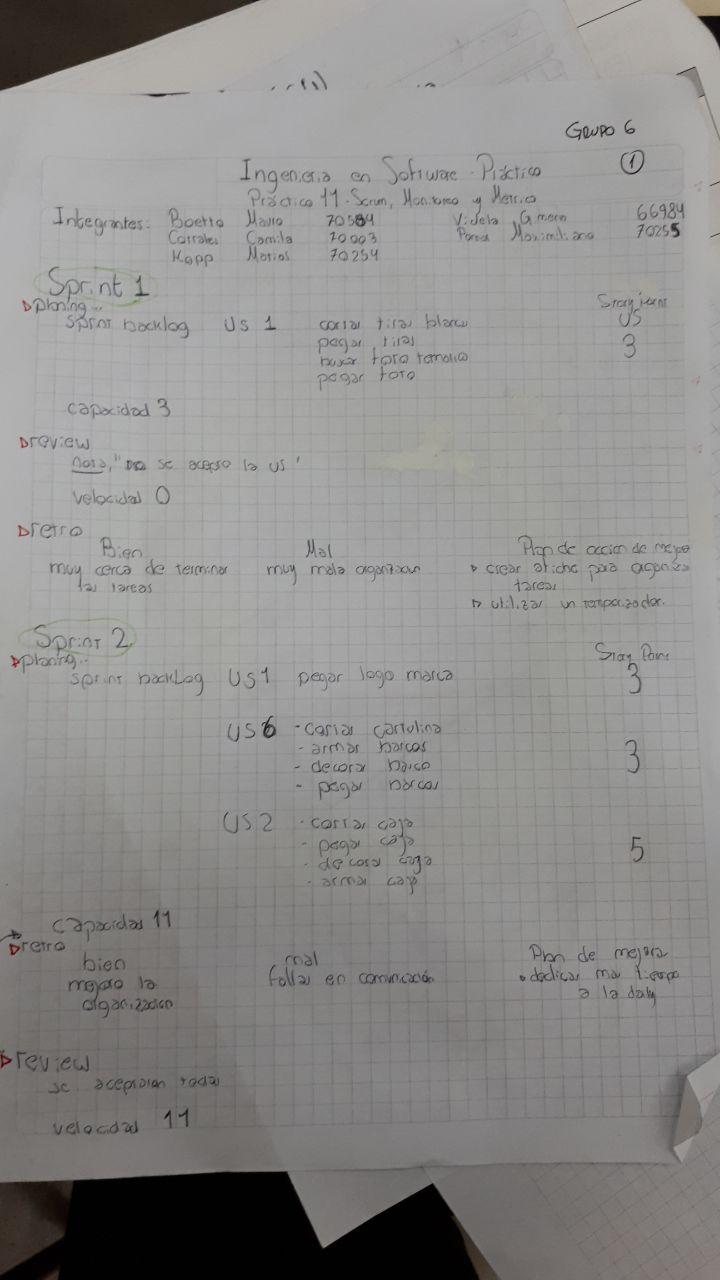 GRUPO 6
1
Ingenieria en Software Práctico
Práctico 11. Scrum, Monitoreo y Metrica
Integrantes: Boetto Mauro 70584 Videla Gimena 66984
Corrales Camila 70003 Maximiliano 70255
Kopp Matias 70254
Sprint 1
planing
sprint backlog US 1 cortar tiras blancas US
pegar tiras 3
buscar foto tematica
pegar foto
capacidad 3
review
nota, "no se acepto la US"
velocidad 0
retro
Bien Mal Plan de accion de mejora
muy cerca de terminar muy mala organizacion crear afiche para organizar
las tareas tareas
utilizar un temporizador.
Sprint 2
planing
sprint backLog US1 pegar logo marca 3
US6 - cortar cartulina
- armar barcos 3
- decorar barco
- pegar barcos
US2 - cortar caja
- pegar caja 5
- decorar caja
- armar caja
capacidad 11
retro
bien mal Plan de mejora
mejoro la fallas en comunicación dedicar mas tiempo
organizacion a la daily
review
se aceptaron todas
velocidad 11